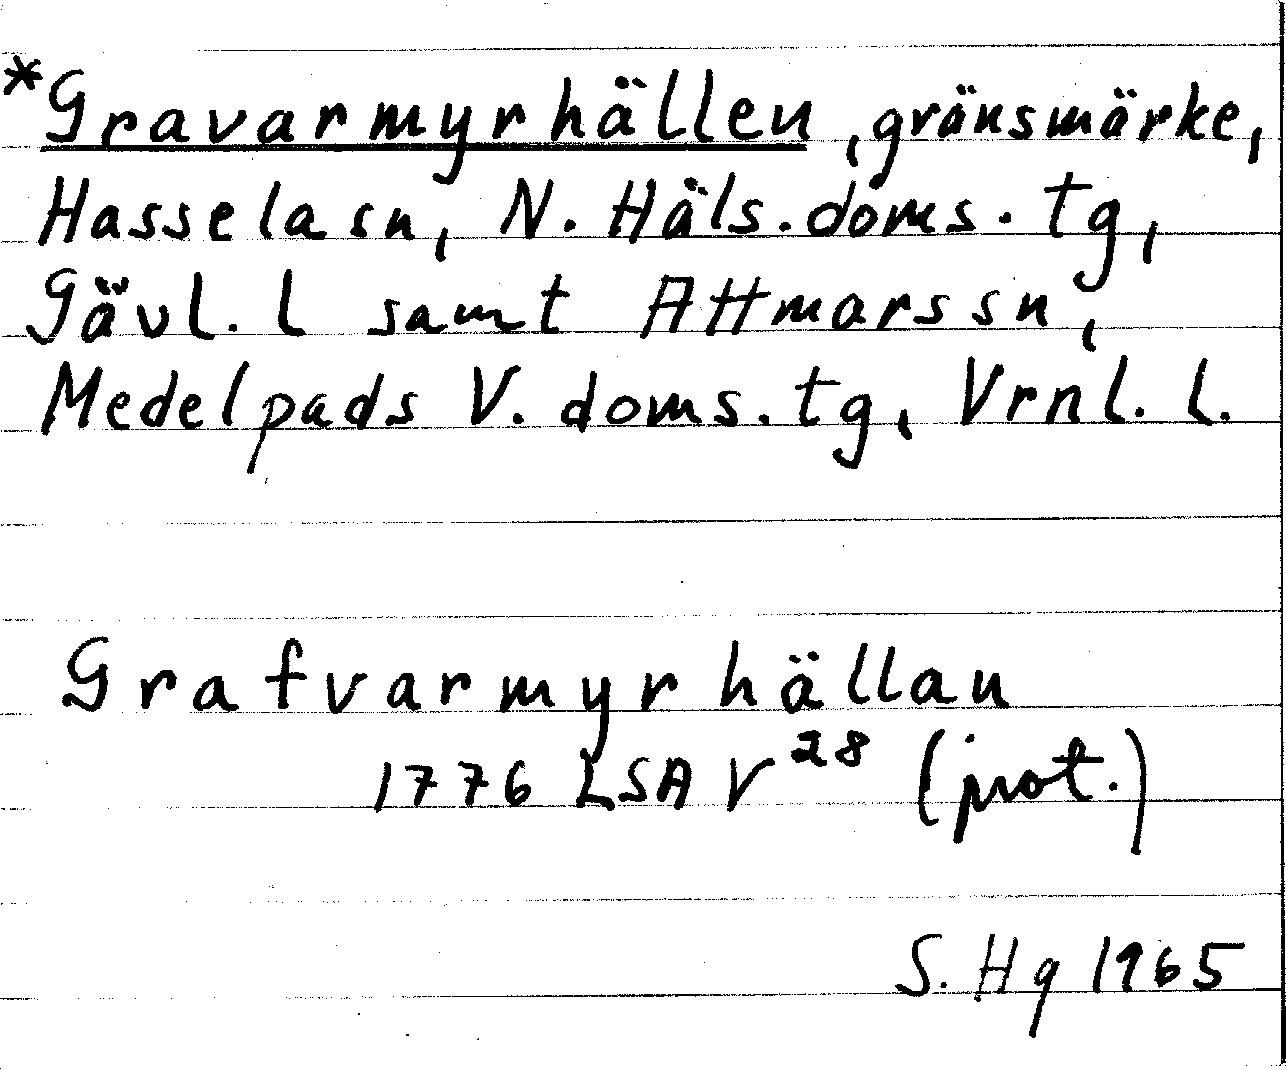 *Gravarmyrhällen, gränsmärke,
Hasselasn, N. Häls. doms. tg,
Gävl. l samt Attmarssn,
Medelpads V. doms. tg, Vrnl. l.
Grafvarmyrhällan
1776 LSA V 28 (prot.)
S. Hg 1965